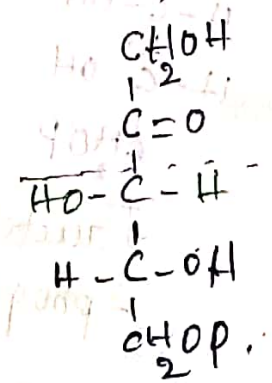 CH2OH
C=O
HO-C-H
H-C-OH
CH2OP.